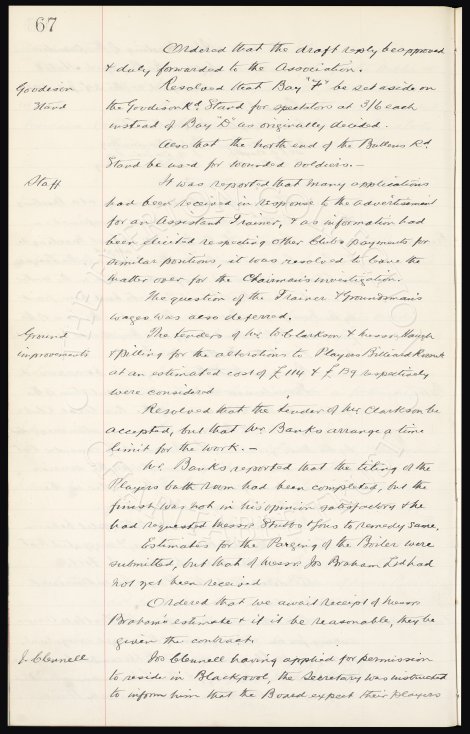 67
Ordered that the draft reply be approved
& duly forwarded to the Association.
Goodison Stand
Resolved that Bay "F" be set aside on
the Goodison Rd. Stand for spectators at 3/6 each
instead of Bay "D" as originally decided.
Also that the north end of the Bullens Rd.
Stand be used for wounded soldiers.—
Staff
It was reported that many applications
had been received in response to the advertisement
for an Assistant Trainer, & as information had
been elicited respecting other Clubs payments for
similar positions, it was resolved to leave the
matter over for the Chairman's investigation.
The question of the Trainer & Groundsman's
wages was also deferred.
Ground improvements
The tenders of Mr. W. Clarkson & Messrs. Haugh
& Pilling for the alterations to Players Billiard Room
at an estimated cost of £114 & £139 respectively
were considered
Resolved that the tender of Mr. Clarkson be
accepted, but that Mr. Banks arrange a time
limit for the work.—
Mr. Banks reported that the tiling of the
Players bath room had been completed, but the
finish was not in his opinion satisfactory & he
had requested Messrs Stubbs & Sons to remedy same.
Estimates for the Purging of the Boiler were
submitted, but that of Messrs Jos Braham Ltd had
not yet been received
Ordered that we await receipt of Messrs
Braham's estimate & if it be reasonable, they be
given the contract.
J. Clennell
Jos Clennell having applied for permission
to reside in Blackpool, the Secretary was instructed
to inform him that the Board expect their players